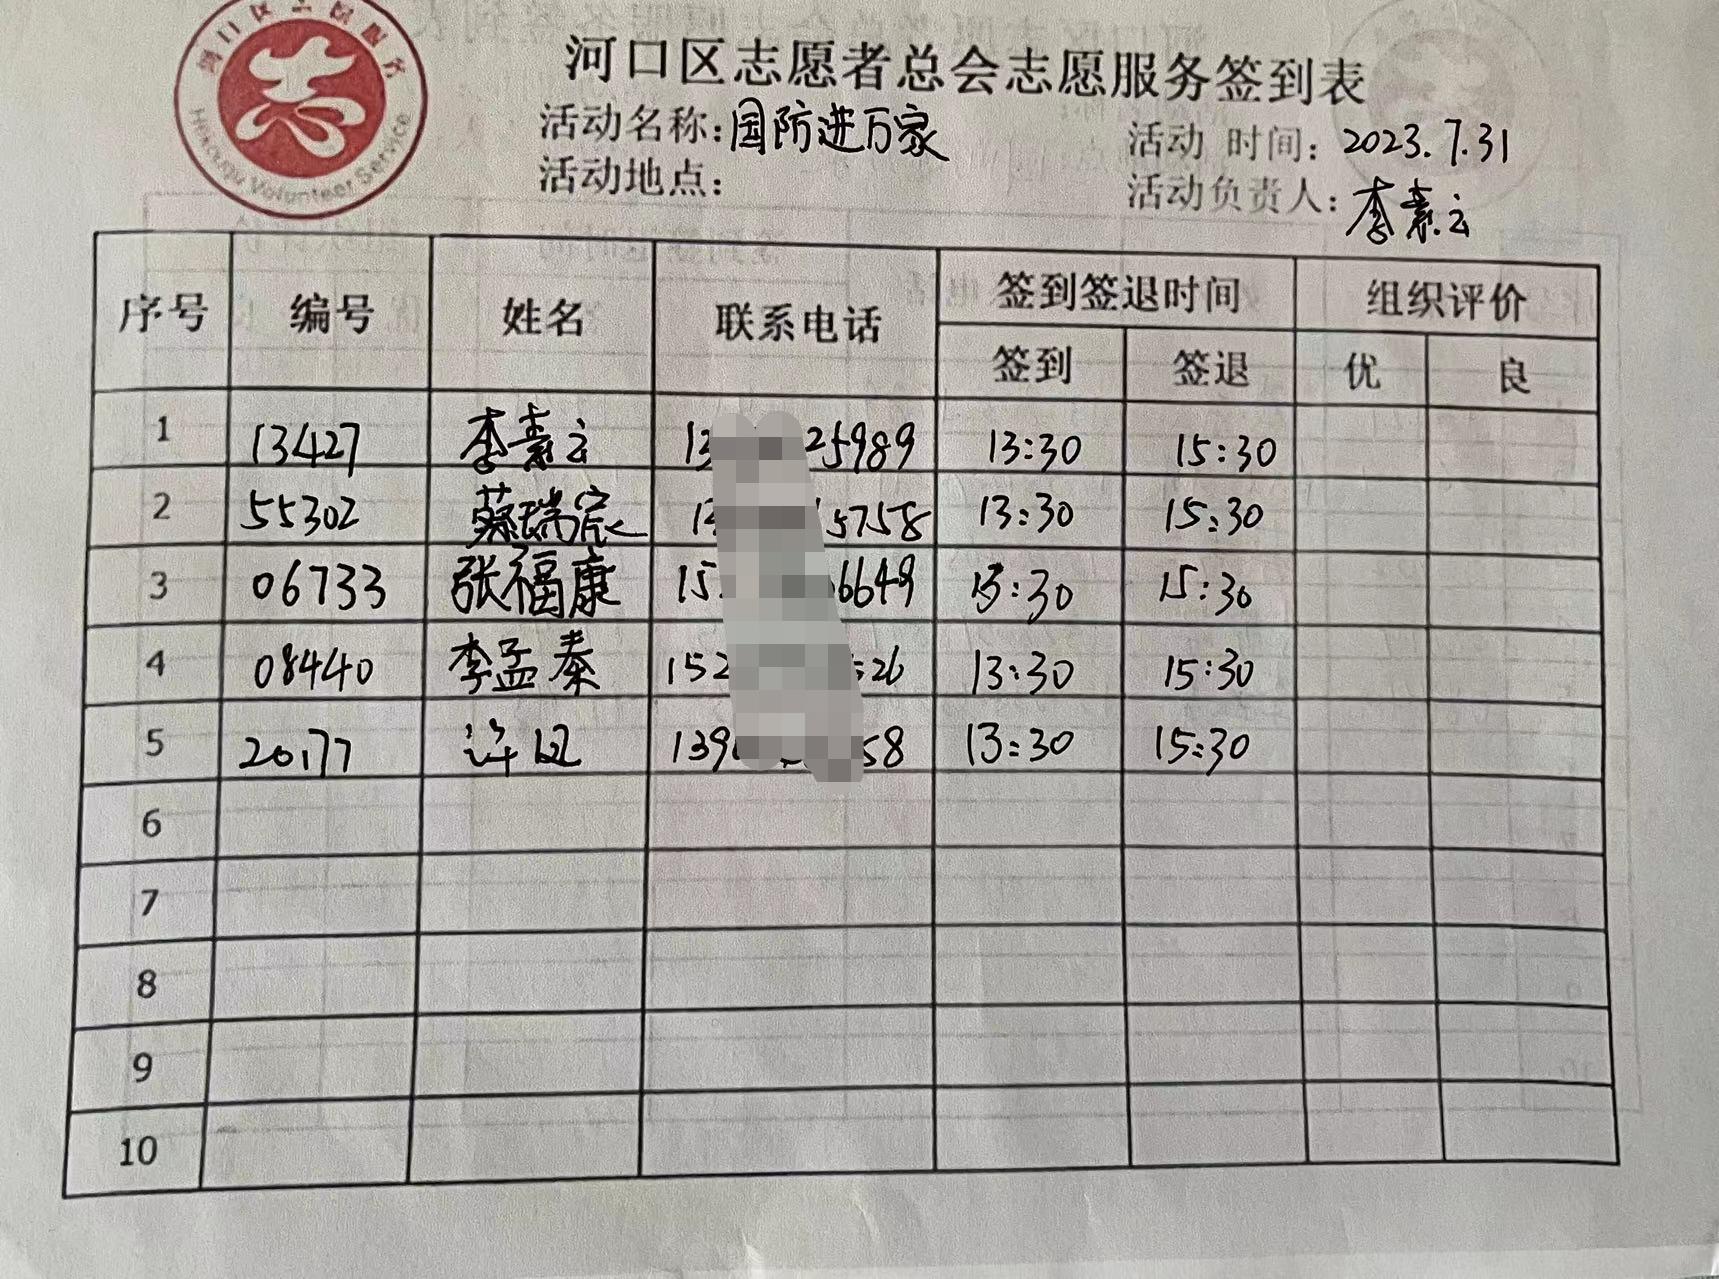 河口区志愿服务
志
Hekouqu Volunteer Service
河口区志愿者总会志愿服务签到表
活动名称:国防进万家 活动 时间: 2023.7.31
活动地点: 活动负责人: 李素云
序号 编号 姓名 联系电话 签到签退时间 组织评价
签到 签退 优 良
1 13427 李素云 13 25989 13:30 15:30
2 55302 蔡瑞宸 13 5758 13:30 15:30
3 06733 张福康 15 6649 13:30 15:30
4 08440 李孟泰 152 26 13:30 15:30
5 20177 139 58 13:30 15:30
6
7
8
9
10